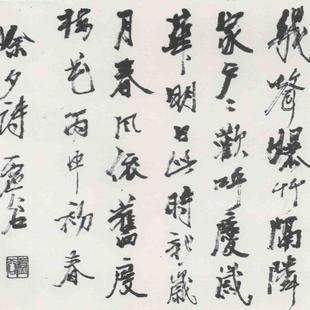 幾聲爆竹隔隣
家户々歡呼慶歲
華明日此時新歲
月春風依舊度
梅花丙申初春
除夕詩虛谷